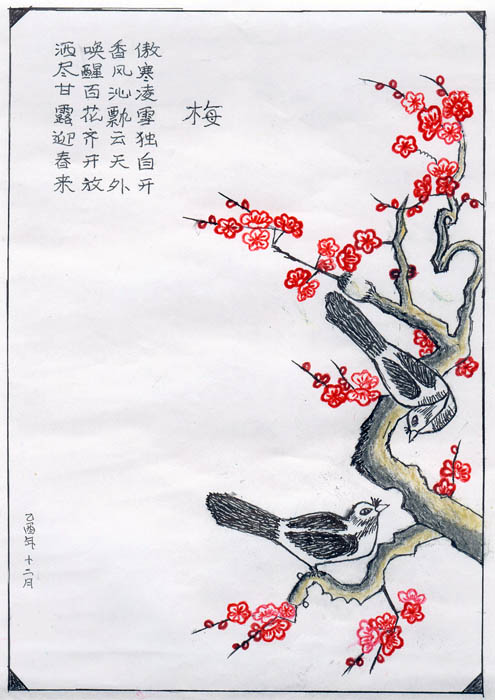 梅
傲寒凌雪独自开
香风沁飘云天外
唤醒百花齐开放
洒尽甘露迎春来
乙酉年 十二月